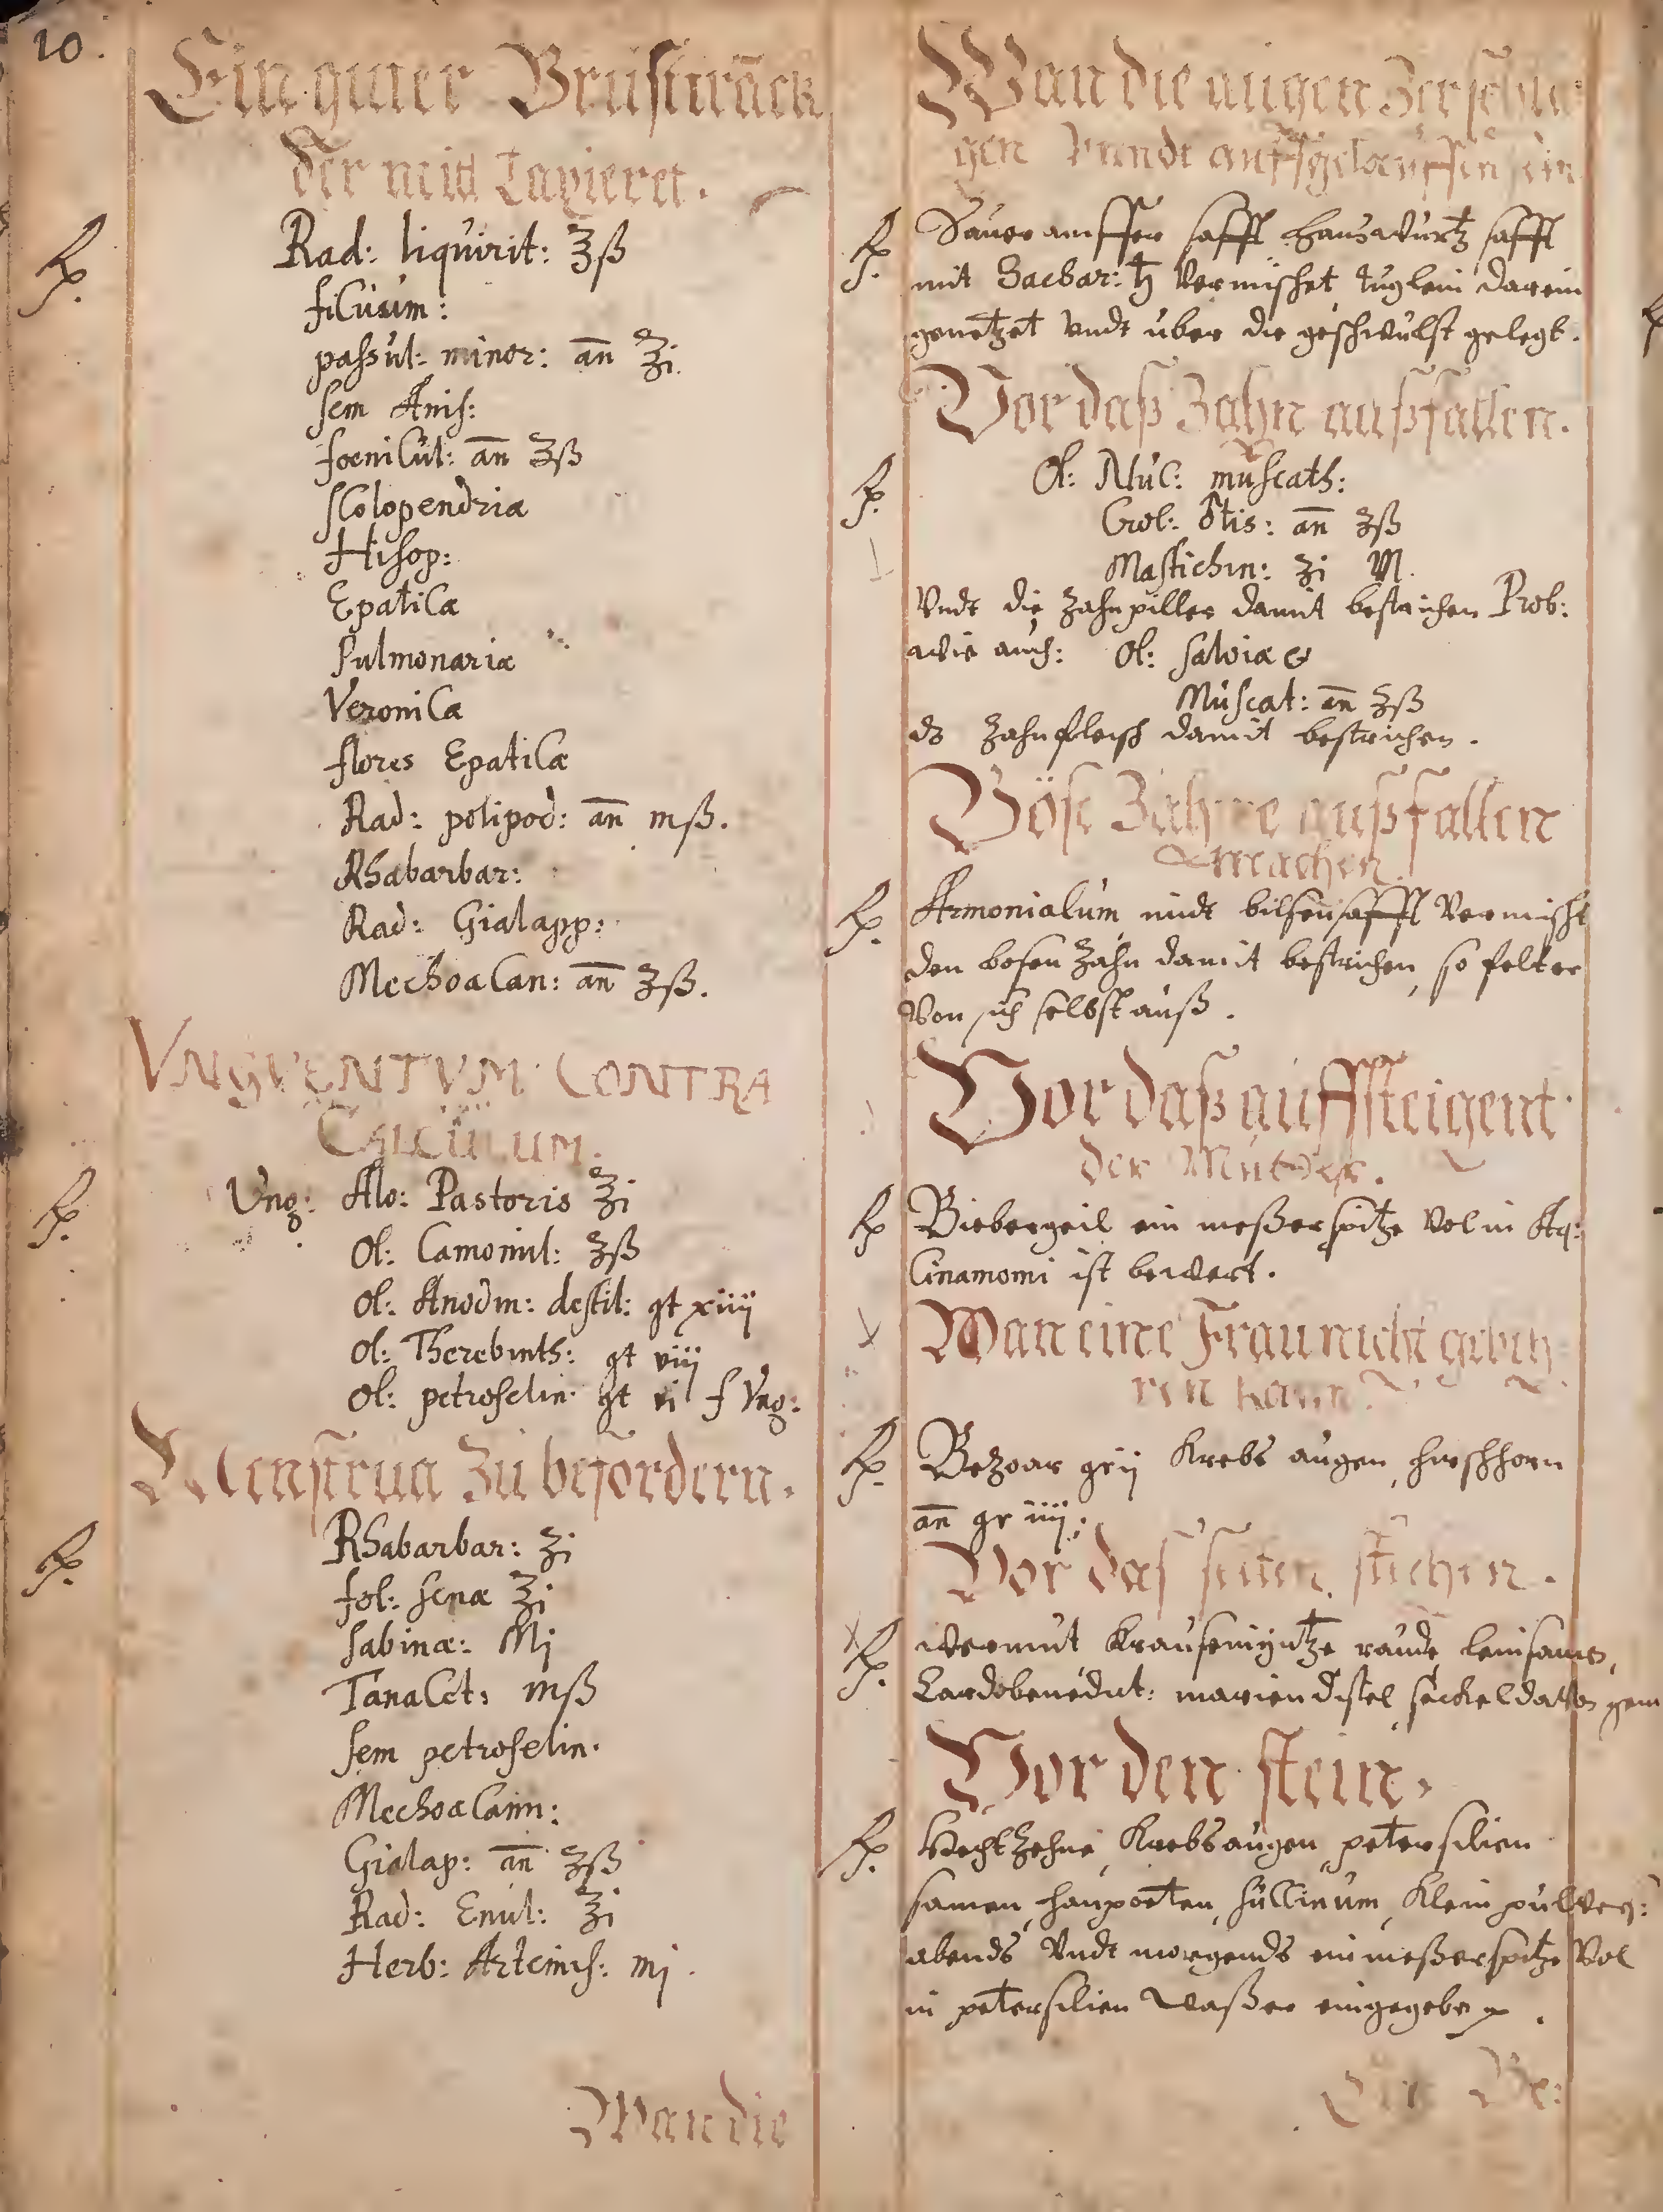 10.
Ein guter Brusttranck
der mitt Laxieret.
Rx. Rad: liquirit: ℥ß
ficuum:
passul: minor: an ℥i.
sem Anis:
foenicul: an ℥ß
scolopendria
Hisop:
Epatica
Pulmonaria
Veronica
flores Epatica
Rad: polipod: an mß.
Rhabarbar:
Rad: Gialapp:
Mechoacan: an ʒß.
VNGVENTVM CONTRA
CALCULUM.
Rx. Ung: Alo: Pastoris ℥i
Ol: Camomil: ʒß
Ol: Anodin: destil: gt xiiij
Ol: Therebinth: gt viij
Ol: petroselin: gt vi f Ung:
Menstrua zu befördern.
Rx. Rhabarbar: ʒi
fol: senæ ʒi
sabinæ: Mj
Tanacet: mß
sem petroselin.
Mechoacann:
Gialap: an ʒß
Rad: Enul: ℥i
Herb: Artemis: mj.
Wan die
Wan die augen
gen vnndt auffgelauffen sein
Rx. Saueramffer safft hauswurtz safft
mit Sachar: ♄ vermischet tuglein darein
genetzet vndt uber die geschwulst gelegt.
Vor daß Zahn außfallen.
Rx. Ol: Nuc: muscath:
an ʒß
Mastichin: ʒi M.
vndt die zahnpiller damit bestrichen Prob:
wie auch: Ol: salviæ &
Muscat: an ʒß
ds zahnfleisch damit bestrichen.
Böse Zähne außfallen
machen.
Rx. Armonialum mitt bilsensafft vermischt
den bosen zahn damit bestrichen, so felt er
von sich selbst auß.
Vor daß auffsteigent
der Mutter.
Rx Biebergeil ein meßerspitze vol in Aq:
Cinamomi ist bewert.
Wan eine Frau nicht gebeh
ren kann.
Rx. Bezoar gr ij Krebs augen, hirschhorn
an gr iiij;
Vor das seiten stechen.
Rx. wermut Krausemyntze raude leinsamen,
Cardobenedict: mariendistel
Vor den stein.
Rx. Hechtzehne, Krebsaugen, petersilien
samen, Klein pulver:
abends vndt morgends ein meßerspitze vol
in petersilien Waßer eingegeben.